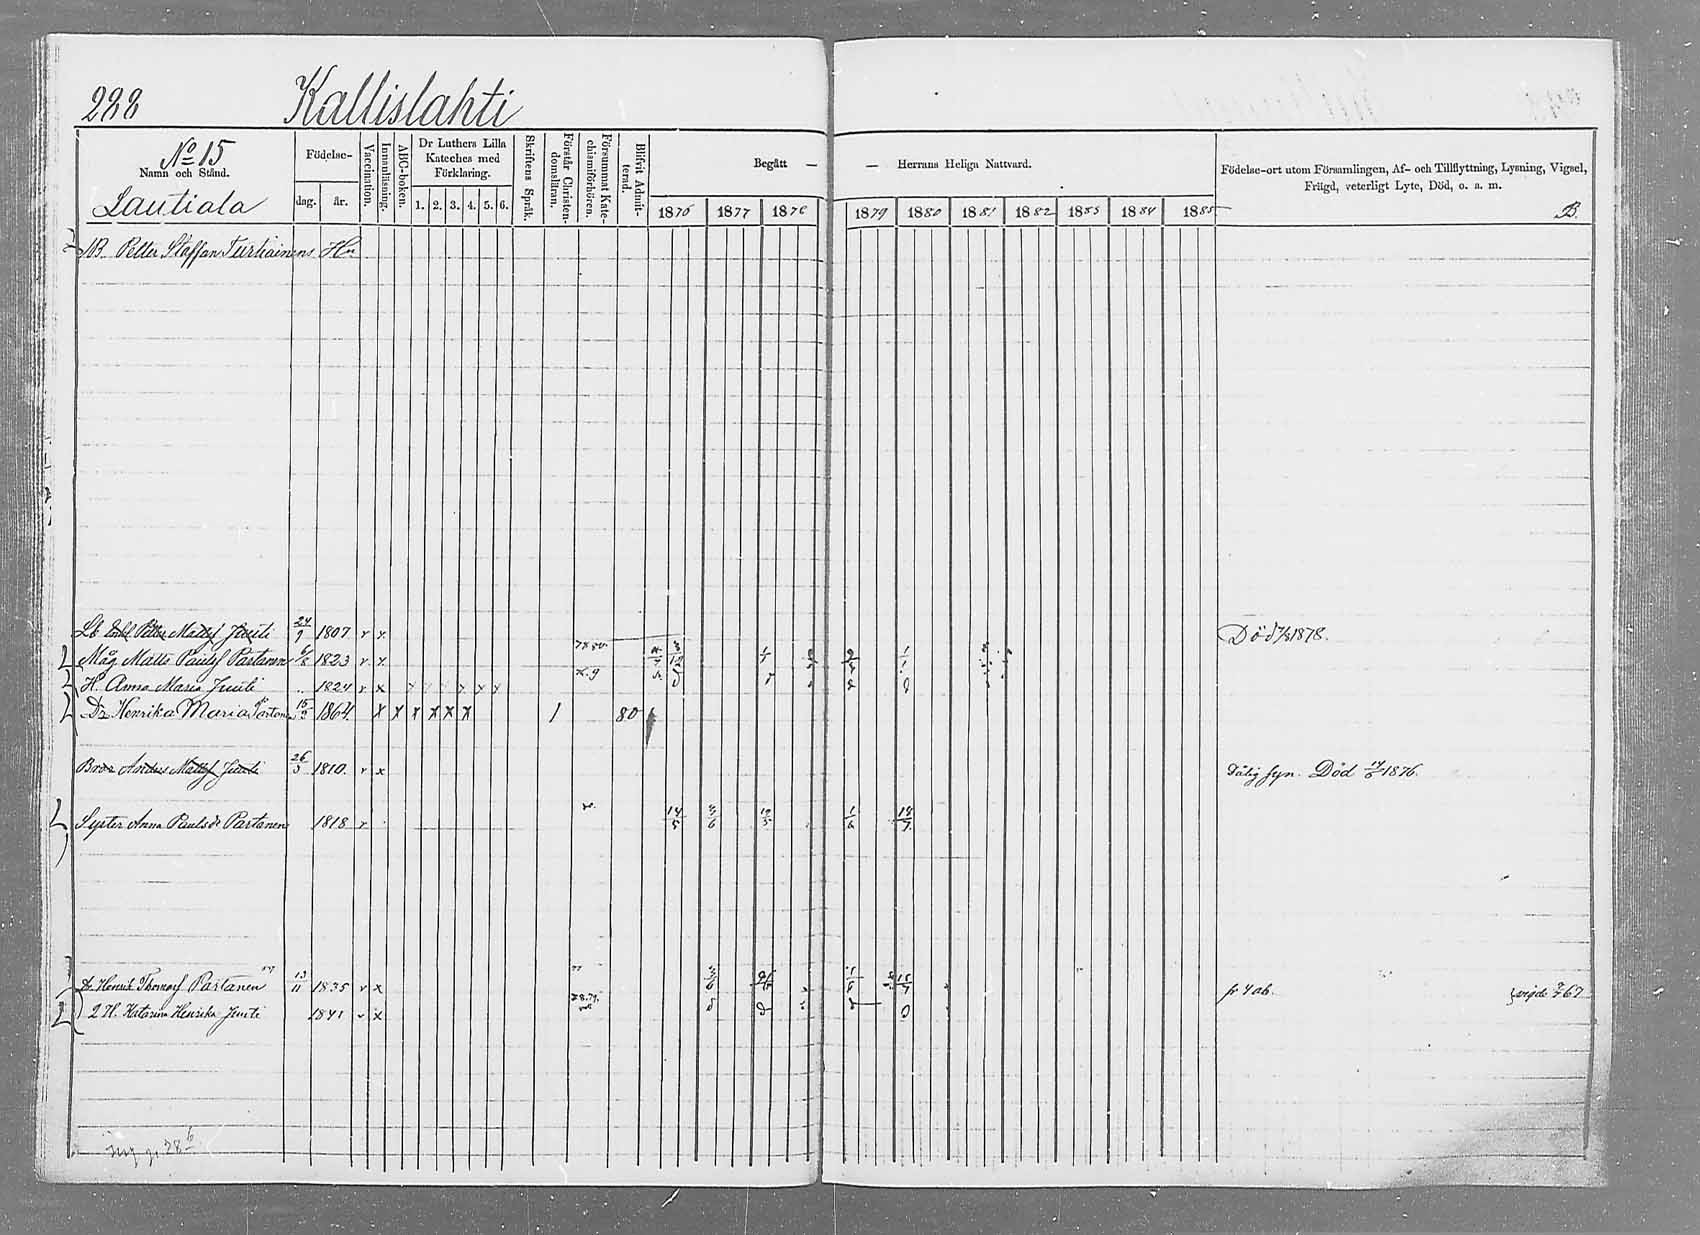 288 Kallislahti
No 15
Namn och Stånd.
Lautiala
Födelse-
dag. år.
Vaccination.
Innanläsning.
ABC-boken.
Dr Luthers Lilla Kateches med Förklaring.
1. 2. 3. 4. 5. 6.
Skriftens Språk.
Förstår Christendomsläran.
Försummat Katechismiförhören.
Blifvit Admitterad.
Begått — — Herrans Heliga Nattvard.
1876 1877 1878 1879 1880 1881 1882 1883 1884 1885
Födelse-ort utom Församlingen, Af- och Tillflyttning, Lysning, Vigsel,
Frägd, veterligt Lyte, Död, o. a. m.
B.
Petter Staffan Turkainens
Petter Mattsf Juuti 24/9 1807 v x Död 1878.
Måg Matts Paulsf Partanen 6/8 1823 v x
H. Anna Maria Juuti 1824 v x
Dr Henrika Maria Partanen 15/2 1864. x x x x x x 1 80
Bror Anders Mattsf Juuti 26/3 1810. v x Dålig syn. Död 1876.
Syster Anna Paulsdr Partanen 1818 v 14/5
Henrik Thomasf Partanen 13/11 1835 v x vigde 67
2 H. Katarina Henrika Juuti 1841 v x